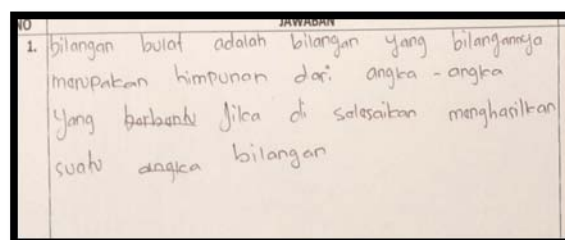 NO JAWABAN
1. bilangan bulat adalah bilangan yang bilangannya
merupakan himpunan dari angka - angka
yang berbentu jika di selesaikan menghasilkan
suatu angka bilangan